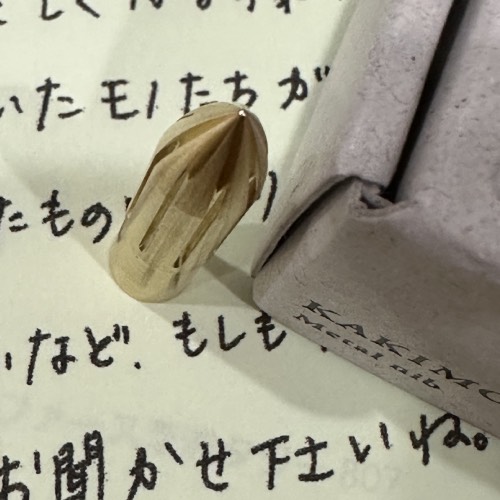 いたモノたちが
たもの
いなど、もしも
お聞かせ下さいね。
KAKIMO
Metal nib